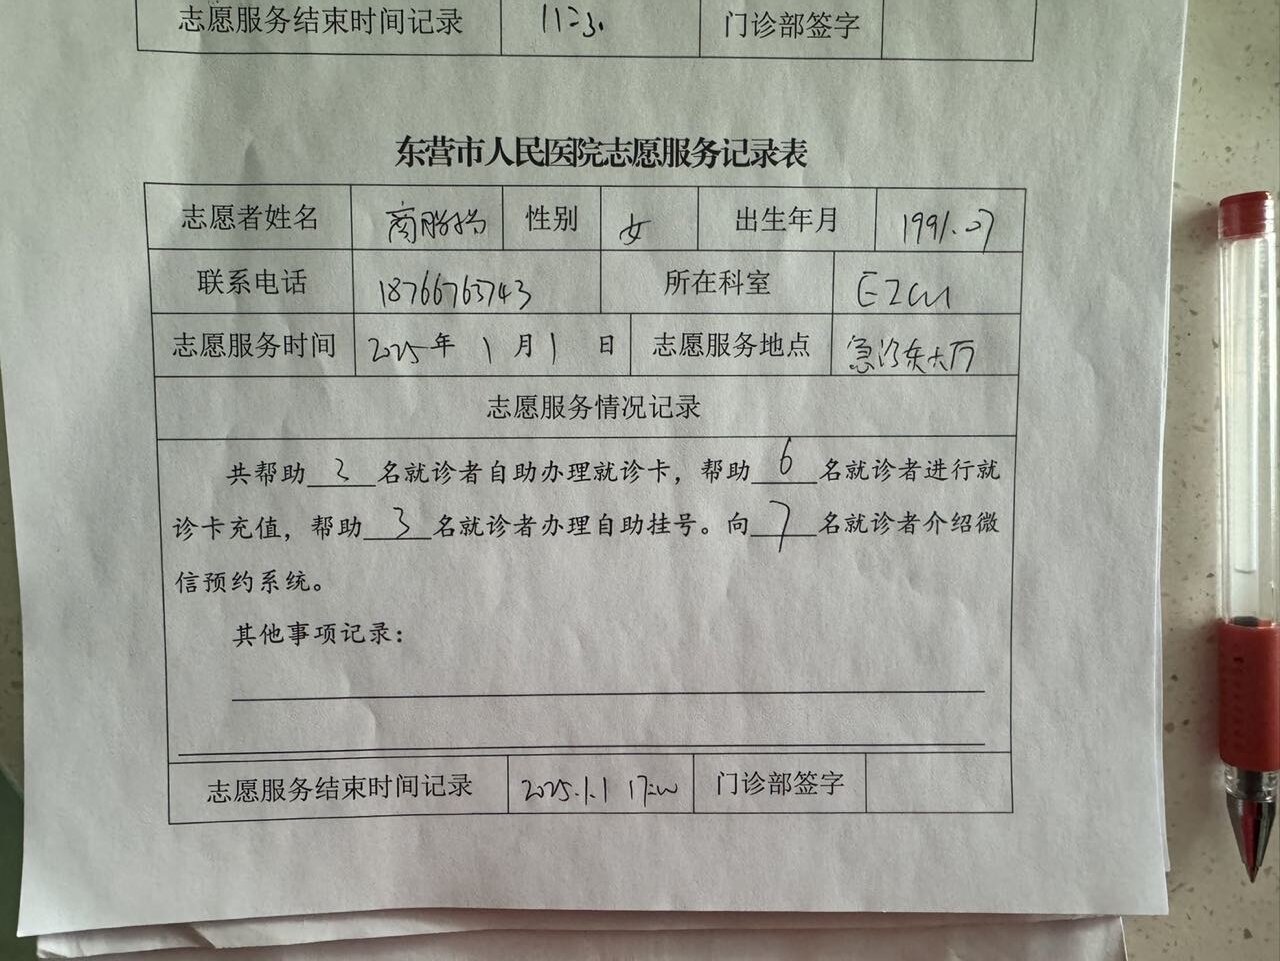 志愿服务结束时间记录 11:30 门诊部签字
东营市人民医院志愿服务记录表
志愿者姓名 商 性别 女 出生年月 1991.07
联系电话 18766765743 所在科室 EICU
志愿服务时间 2025年1月1日 志愿服务地点 急诊东大厅
志愿服务情况记录
共帮助2名就诊者自助办理就诊卡，帮助6名就诊者进行就
诊卡充值，帮助3名就诊者办理自助挂号。向7名就诊者介绍微
信预约系统。
其他事项记录：
志愿服务结束时间记录 2025.1.1 17:00 门诊部签字